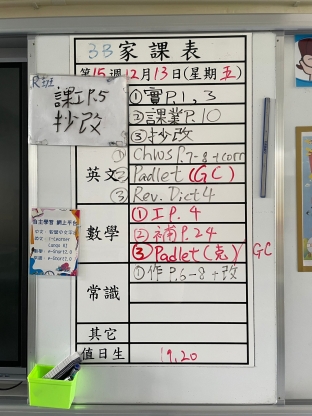 3B 家課表
第15週12月13日(星期五)
R班
課工P.5
抄改
①實P.1,3
②課業P.10
③抄改
英文
① Chws P.7-8+corr
② Padlet (GC)
③ Rev. Dict 4
自主學習 網上平台
數學
①工P.4
②補P.24
③Padlet(克) GC
常識
①作P.6-8+改
其它
值日生
19,20